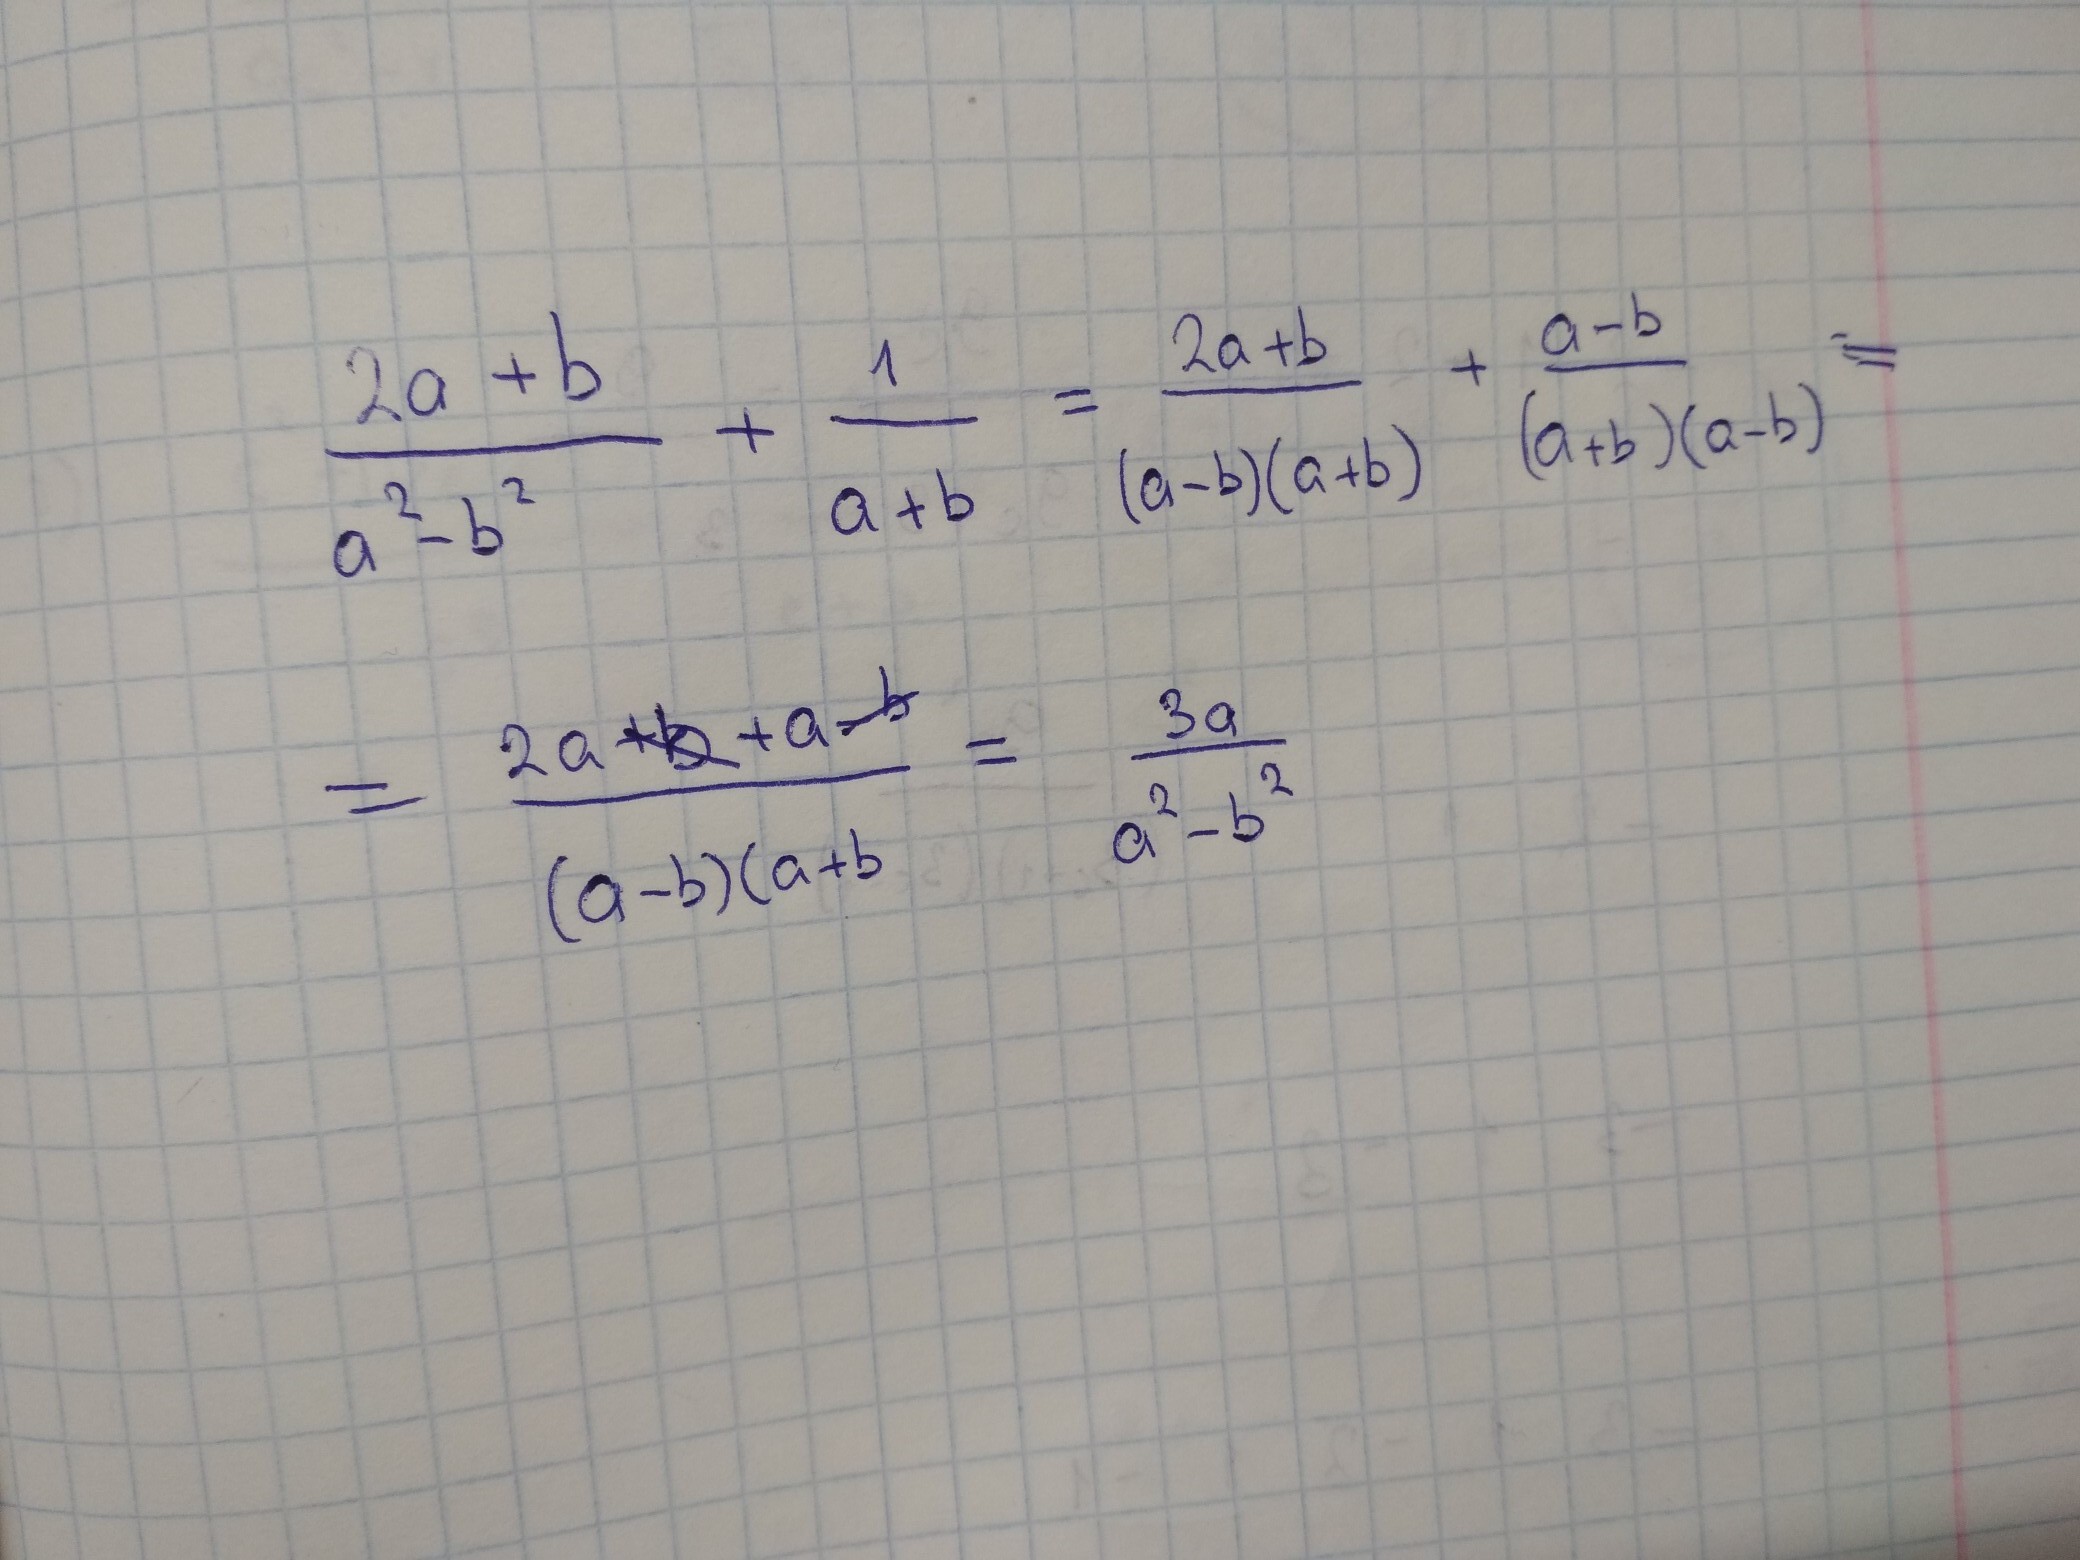 (2a+b)/(a²-b²) + 1/(a+b) = (2a+b)/((a-b)(a+b)) + (a-b)/((a+b)(a-b)) =
= (2a+b+a-b)/((a-b)(a+b) = 3a/(a²-b²)